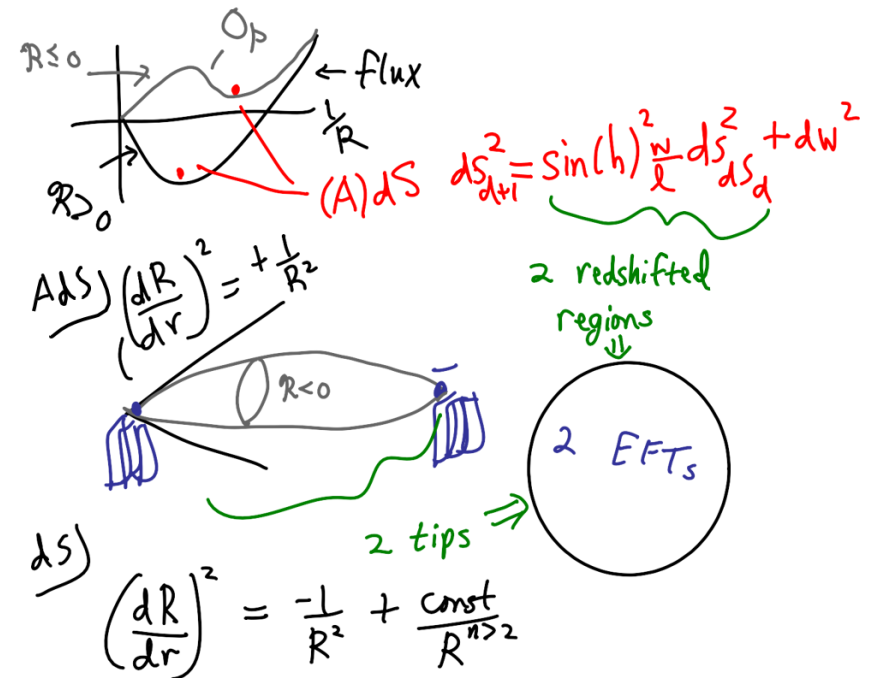 Op
R≤0
← flux
1/R
R>0
(A)dS
ds²_{d+1} = sin(h)² w/l ds²_{dS_d} + dw²
2 redshifted
regions
⇓
AdS) (dR/dr)² = + 1/R²
R<0
2 EFTs
2 tips ⇒
dS)
(dR/dr)² = -1/R² + const/R^{n>2}